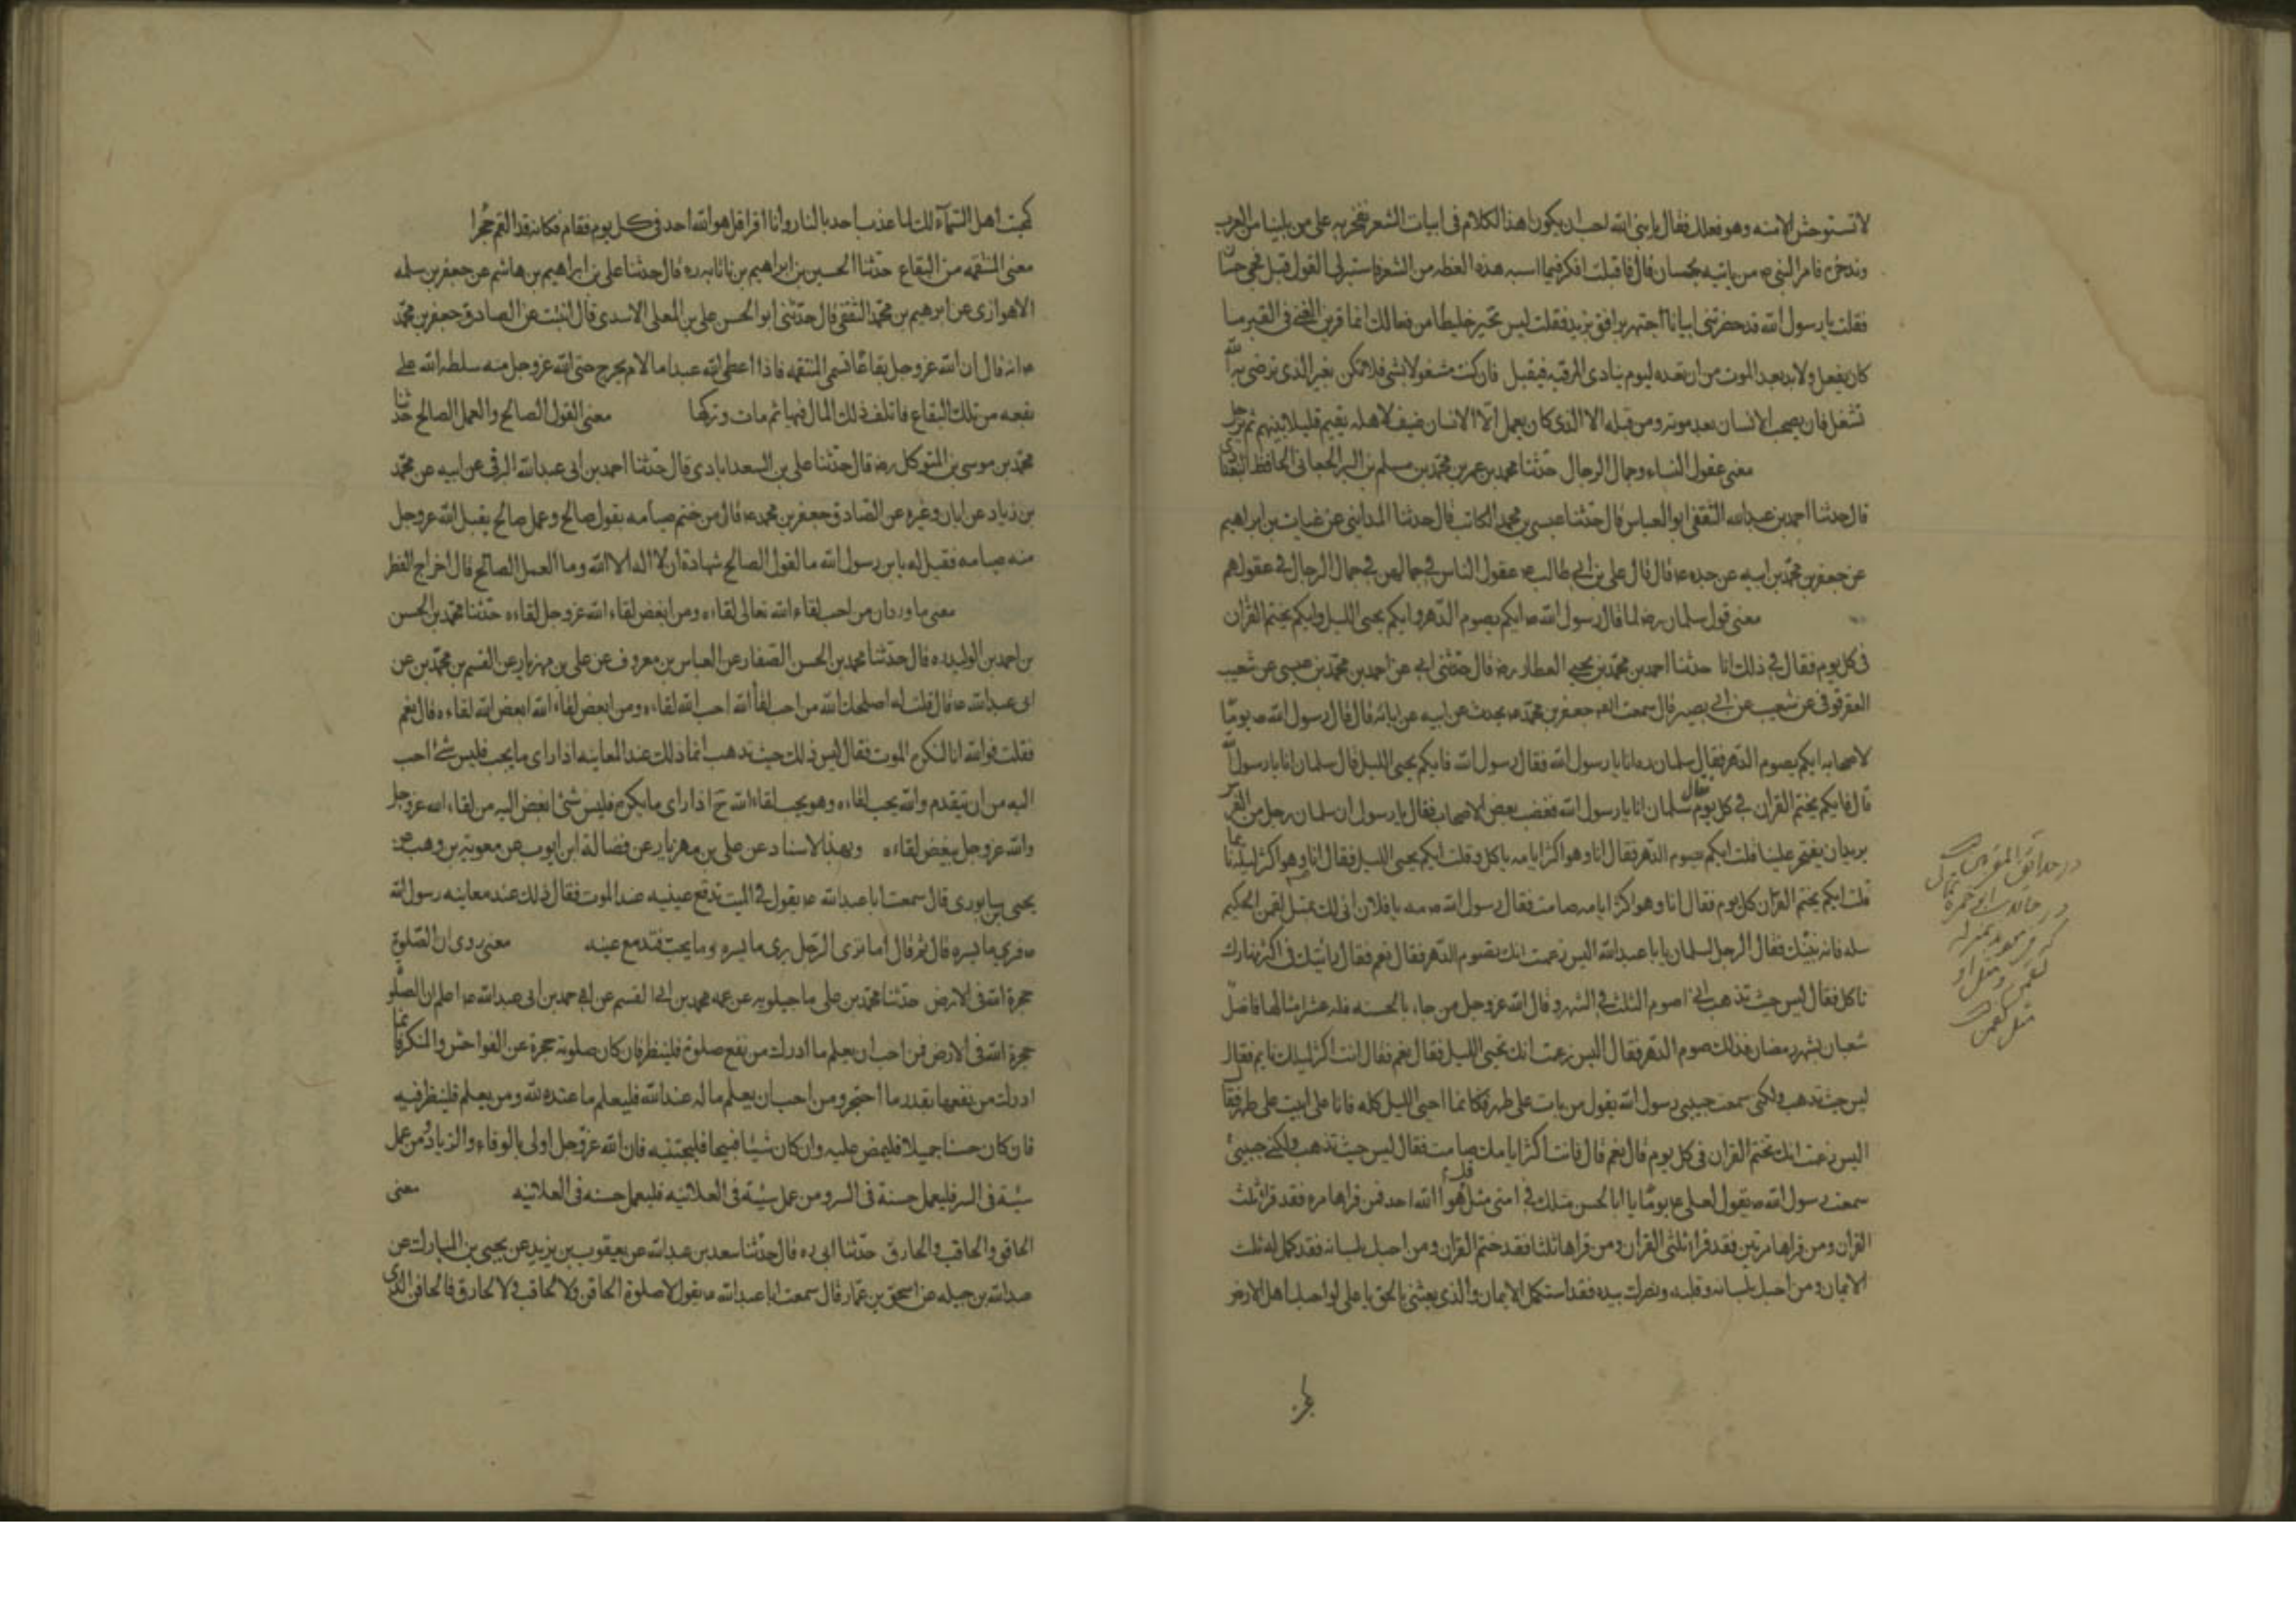 لا تستوحش الا منه وهو فعلك فقال يا نبي الله احب ان يكون هذا الكلام في ابيات الشعر نفخر به على من يلينا من العرب
وندخره فامر النبي ص من ياتيه بحسان قال فاقبلت افكر فيما اشبه هذه العظه من الشعر فاستتب لي القول قبل مجي حسان
فقلت يا رسول الله قد حضرتني ابياتا فقلت ليس تخير خليطا من فعالك انما قرين الفتى في القبر ما
كان يفعل ولا بد بعد الموت من ان تعده ليوم ينادى المرء فيه فيقبل فان كنت مشغولا بشي فلا تكن بغير الذي يرضى به الله
تشغل فان يصحب الانسان بعد موته ومن قبله الا الذي كان يعمل الا الانسان ضيف لاهله يقيم قليلا بينهم ثم يرحل
معنى عقول النساء وجمال الرجال حدثنا محمد بن عمر بن محمد بن مسلم بن البر الجعابي الحافظ
قال حدثنا احمد بن عبدالله الثقفي ابو العباس قال حدثنا عيسى بن محمد الكاتب قال حدثنا المدايني عن غياث بن ابراهيم
عن جعفر بن محمد بن ابيه عن جده ع قال قال علي بن ابي طالب ع عقول الناس في جمالهن في جمال الرجال في عقولهم
معنى قول سلمان رض لما قال رسول الله ص ايكم يصوم الدهر وايكم يحيى الليل وايكم يختم القران
في كل يوم فقال في ذلك انا حدثنا احمد بن محمد بن يحيي العطار رض قال حدثني ابي عن احمد بن محمد بن عيسى عن شعيب
العقرقوفي عن شعيب عن ابي بصير قال سمعت جعفر بن محمد ع يحدث عن ابيه عن ابائه قال قال رسول الله ص يوما
لاصحابه ايكم يصوم الدهر فقال سلمان ره انا يا رسول الله فقال رسول الله فايكم يحيى الليل قال سلمان انا يا رسول الله
قال فايكم يختم القران في كل يوم فقال سلمان انا يا رسول الله فغضب بعض الاصحاب فقال يا رسول ان سلمان رجل من الفرس
يريد ان يفتخر علينا قلت ايكم يصوم الدهر فقال انا وهو اكثر ايامه ياكل وقلت ايكم يحيى الليل فقال انا وهو اكثر ليله نائما
قلت ايكم يختم القران كل يوم فقال انا وهو اكثر ايامه صامت فقال رسول الله ص مه يا فلان انى لك بمثل لقمن الحكيم
سله فانه ينبئك فقال الرجل لسلمان يا با عبدالله اليس زعمت انك تصوم الدهر فقال نعم فقال رايتك في اكثر نهارك
تاكل فقال ليس حيث تذهب اني اصوم الثلث في الشهر وقال الله عز وجل من جاء بالحسنه فله عشر امثالها فاصل
شعبان بشهر رمضان فذلك صوم الدهر فقال اليس زعمت انك تحيى الليل فقال نعم فقال انت اكثر ليلك نايم فقال
ليس حيث تذهب ولكني سمعت حبيبي رسول الله يقول من بات على طهر فكانما احيى الليل كله فانا على ابيت على طهر فقال
اليس زعمت انك تختم القران في كل يوم قال نعم قال فانت اكثر ايامك صامت فقال ليس حيث تذهب ولكني حبيبي
سمعت رسول الله ص يقول لعلي ع يوما يا ابا الحسن مثلك في امتي مثل قل هو الله احد فمن قراها مره فقد قرا ثلث
القران ومن قراها مرتين فقد قرا ثلثي القران ومن قراها ثلثا فقد ختم القران ومن احبك بلسانه فقد كمل له ثلث
الايمان ومن احبك بلسانه وقلبه ونصرك بيده فقد استكمل الايمان والذي بعثني بالحق يا علي لو احبك اهل الارض
كمحبت اهل السماء لك لما عذب احد بالنار وانا اقرا قل هو الله احد في كل يوم فقام فكانه قد القم حجرا
معنى المنتقمه من البقاع حدثنا الحسين بن ابراهيم بن ناتانه ره قال حدثنا علي بن ابراهيم بن هاشم عن جعفر بن سلمه
الاهوازي عن ابرهيم بن محمد الثقفي قال حدثني ابو الحسن علي بن المعلى الاسدي قال انبئت عن الصادق جعفر بن محمد
ع انه قال ان الله عز وجل بقاعا تسمى المنتقمه فاذا اعطى الله عبدا مالا لم يخرج حق الله عز وجل منه سلطه الله على
بقعه من تلك البقاع فاتلف ذلك المال فيها ثم مات وتركها معنى القول الصالح والعمل الصالح حدثنا
محمد بن موسى بن المتوكل رض قال حدثنا علي بن السعدابادي قال حدثنا احمد بن ابي عبدالله البرقي عن ابيه عن محمد
بن زياد عن ابان وغيره عن الصادق جعفر بن محمد ع قال من ختم صيامه بقول صالح وعمل صالح يقبل الله عز وجل
منه صيامه فقيل له يا بن رسول الله ما القول الصالح شهادة ان لا اله الا الله وما العمل الصالح قال اخراج الفطر
معنى ما ورد ان من احب لقاء الله تعالى لقاءه ومن ابغض لقاء الله عز وجل لقاءه حدثنا محمد بن الحسن
بن احمد بن الوليد ره قال حدثنا محمد بن الحسن الصفار عن العباس بن معروف عن علي بن مهزيار عن القسم بن محمد بن عن
ابي عبدالله ع قال قلت له اصلحك الله من احب لقا الله احب الله لقاءه ومن ابغض لقاء الله ابغض الله لقاءه قال نعم
فقلت فوالله انا لنكره الموت فقال ليس ذلك حيث تذهب انما ذلك عند المعاينه اذا راى ما يحب فليس شئ احب
اليه من ان يتقدم والله يحب لقاءه وهو يحب لقاء الله ح اذا راى ما يكره فليس شئ ابغض اليه من لقاء الله عز وجل
والله عز وجل يبغض لقاءه وبهذا الاسناد عن علي بن مهزيار عن فضالة ابن ايوب عن معوية بن وهب عن
يحيى بن سابوري قال سمعت ابا عبدالله ع يقول في الميت تدمع عينيه عند الموت فقال ذلك عند معاينه رسول الله
ص فيرى ما يسره قال ثم قال اما ترى الرجل يرى ما يسره وما يحب فتدمع عينه معنى روي ان الصلوة
حجزة الله في الارض حدثنا محمد بن علي ماجيلويه عن عمه محمد بن ابي القسم عن احمد بن ابي عبدالله ع اعلم ان الصلوة
حجزة الله في الارض فمن احب ان يعلم ما ادرك من نفع صلوته فلينظر فان كان صلوته حجزة عن الفواحش والمنكر فانما
ادرك من نفعها بقدر ما احتجز ومن احب ان يعلم ما له عند الله فليعلم ما عنده لله ومن يعلم فلينظر فيه
فان كان حسنا جميلا فليمض عليه وان كان شيئا قبيحا فليجتنبه فان الله عز وجل اولى بالوفاء والزيادة ومن عمل
سيئة في السر فليعمل حسنة في السر ومن عمل سيئة في العلانيه فليعمل حسنه في العلانيه معنى
الحاقن والحاقب والحازق حدثنا ابي ره قال حدثنا سعد بن عبدالله عن يعقوب بن يزيد عن يحيى بن المبارك عن
عبدالله بن جبله عن اسحق بن عمار قال سمعت ابا عبدالله ع يقول لا صلوة الحاقن ولا لحاقب ولا لحازق فالحاقن الذي